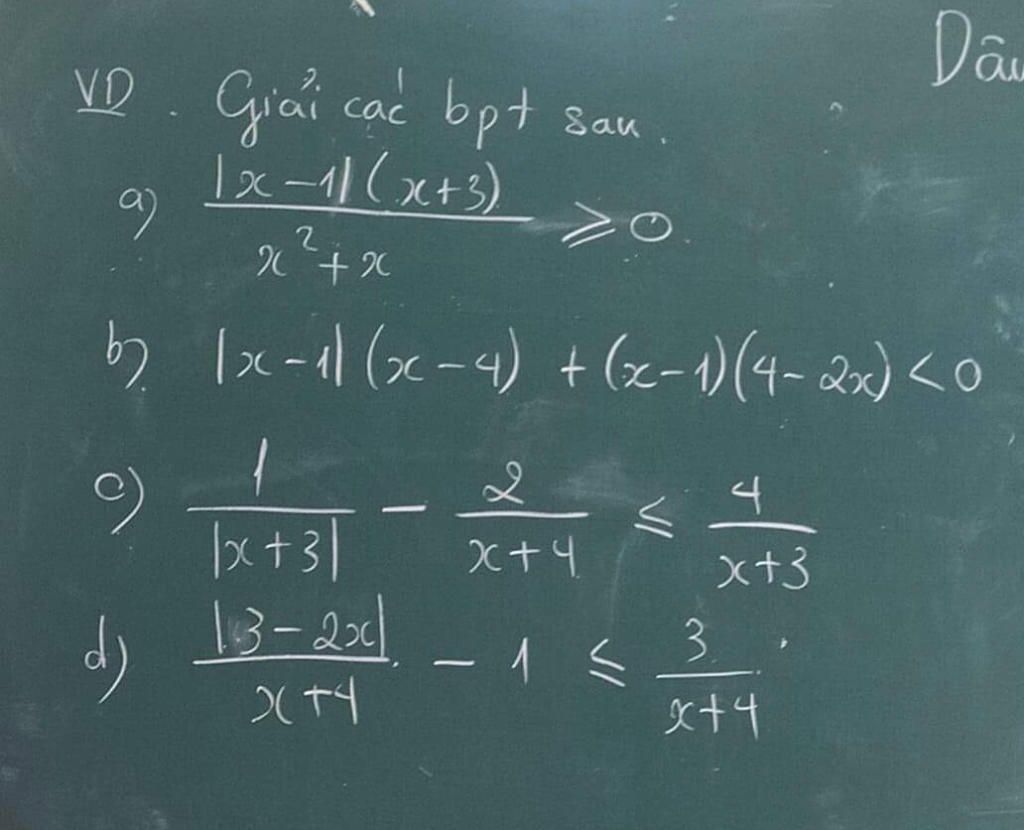 Dấu
VD. Giải các bpt sau.
a) |x-1|(x+3)/(x²+x) ≥ 0
b) |x-1|(x-4) + (x-1)(4-2x) < 0
c) 1/|x+3| - 2/(x+4) ≤ 4/(x+3)
d) |3-2x|/(x+4) - 1 ≤ 3/(x+4)